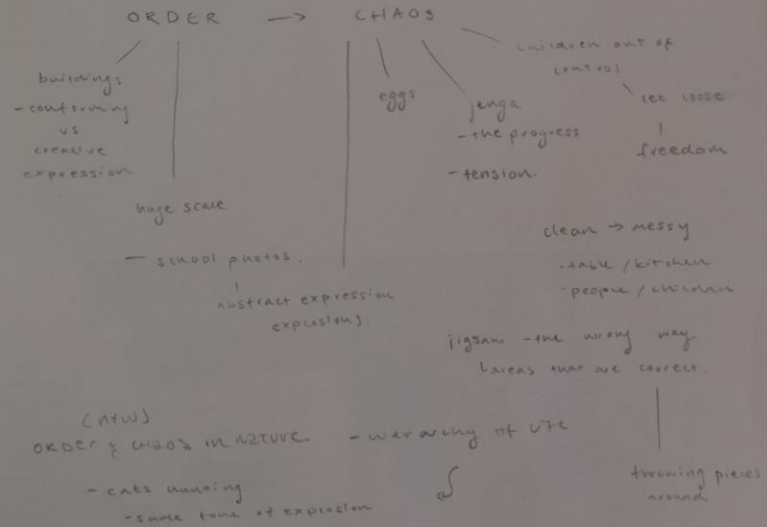 ORDER → CHAOS
buildings
- conforming
vs
creative
expression
huge scale
- school photos.
abstract expression
explosions
eggs
jenga
- the progress
- tension.
children out of
control
let loose
freedom
clean → messy
· table / kitchen
· people / children
jigsaw - the wrong way
areas that are correct.
throwing pieces
around
(NEW)
ORDER & CHAOS IN NATURE - hierarchy of life
- cats hunting
- some of explosion